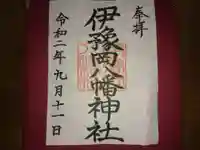 奉拝
伊豫岡八幡神社
令和二年九月十一日